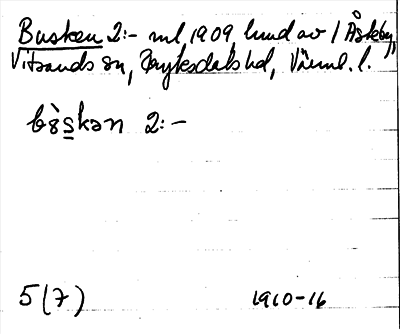 Busken 2:- ml, 1909, lund av / Åskeby,
Vitsands sn, Fryksdals hd, Värml. l.
bòskən 2:-
5(7) 1910-16